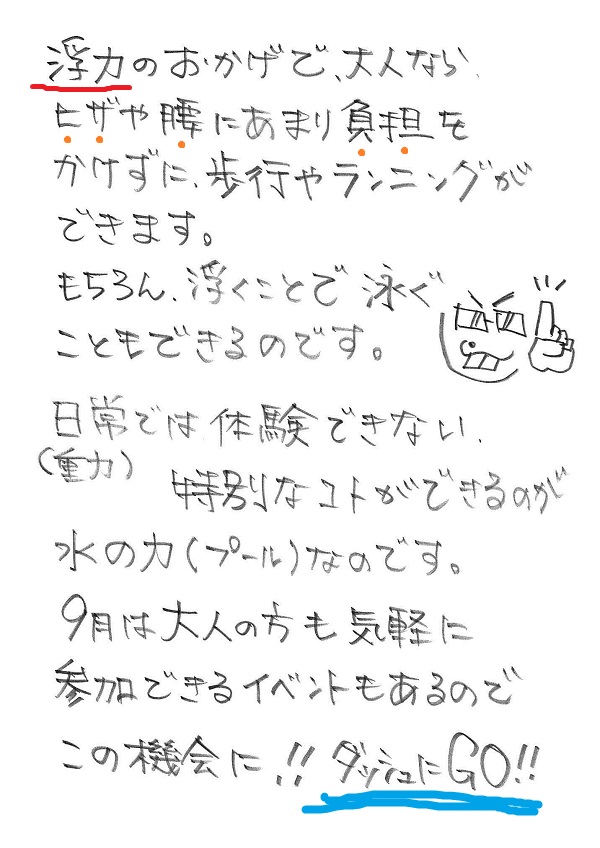 浮力のおかげで、大人なら、
ヒザや腰にあまり負担を
かけずに、歩行やランニングが
できます。
もちろん、浮くことで泳ぐ
こともできるのです。
日常では体験できない、
(重力)
特別なコトができるのが
水の力(プール)なのです。
9月は大人の方も気軽に
参加できるイベントもあるので
この機会に!! ダッシュにGO!!